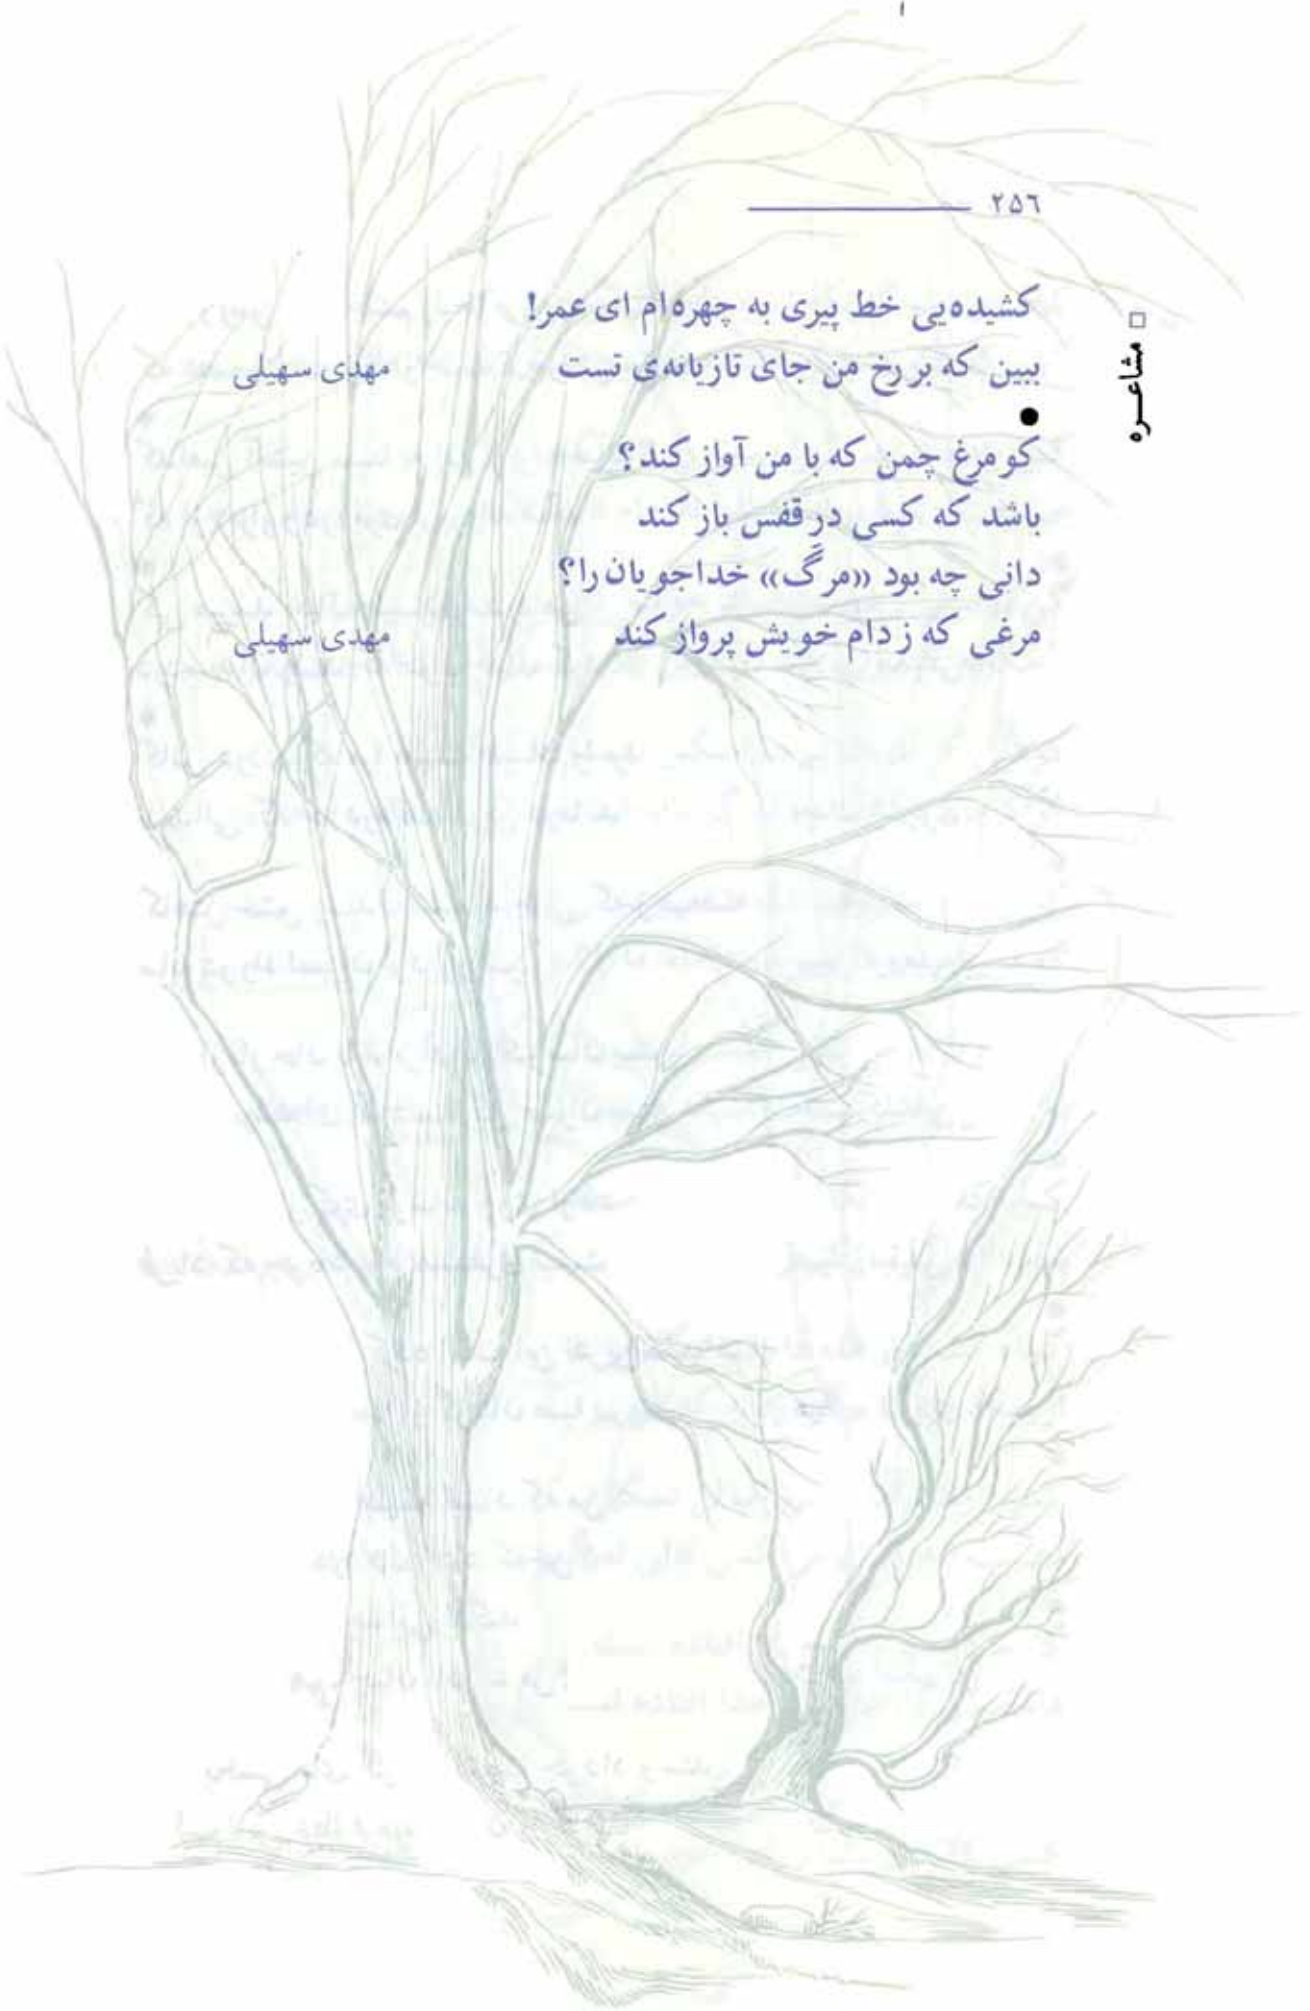 ۲۵٦
□ مشاعـره
کشیده‌یی خط پیری به چهره‌ام ای عمر!
ببین که بر رخ من جای تازیانه‌ی تست مهدی سهیلی
●
کو مرغ چمن که با من آواز کند؟
باشد که کسی درِ قفس باز کند
دانی چه بود «مرگ» خداجویان را؟
مرغی که ز دام خویش پرواز کند مهدی سهیلی